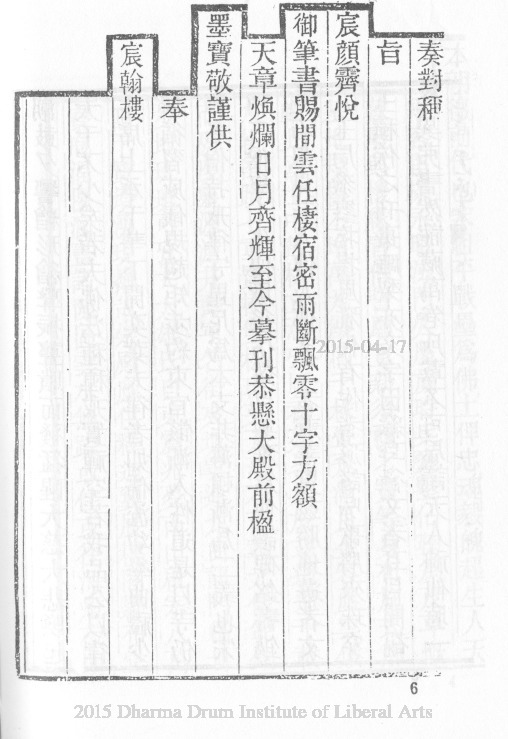 奏對稱
旨
宸顏霽悅
御筆書賜間雲任棲宿密雨斷飄零十字方額
天章煥爛日月齊輝至今摹刊恭懸大殿前楹
墨寶敬謹供
奉
宸翰樓
2015-04-17
6
2015 Dharma Drum Institute of Liberal Arts